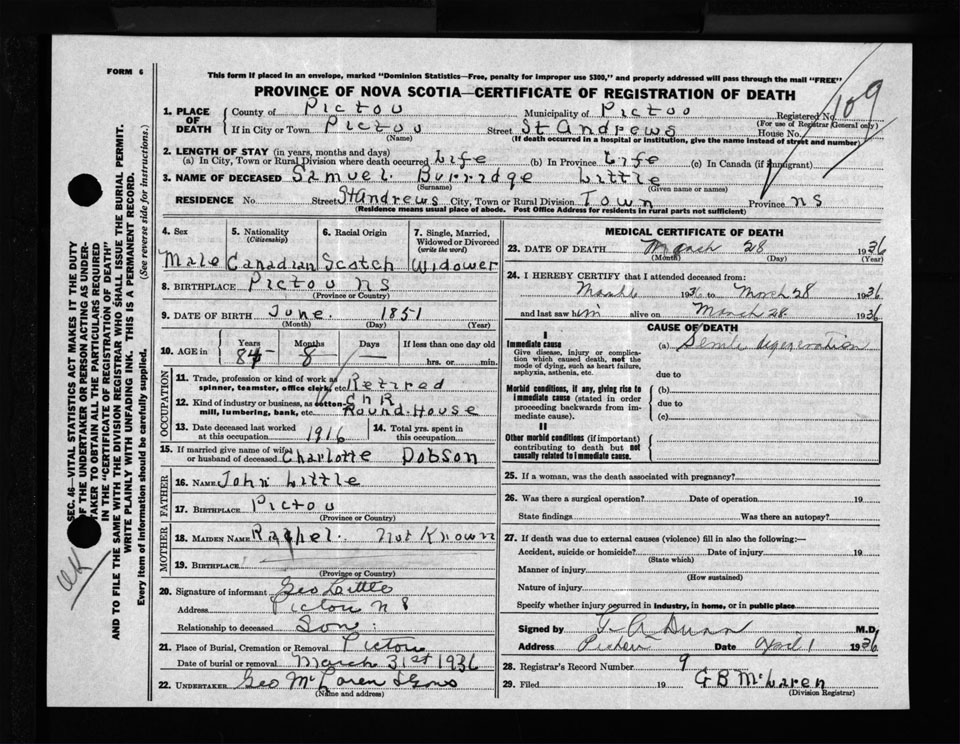 FORM 6
This form if placed in an envelope, marked "Dominion Statistics—Free, penalty for improper use $300," and properly addressed will pass through the mail "FREE"
PROVINCE OF NOVA SCOTIA—CERTIFICATE OF REGISTRATION OF DEATH
109
1. PLACE OF DEATH
County of Pictou Municipality of Pictou Registered No.
(For use of Registrar General only)
If in City or Town Pictou Street St Andrews House No.
(Name) (If death occurred in a hospital or institution, give the name instead of street and number)
2. LENGTH OF STAY (in years, months and days)
(a) In City, Town or Rural Division where death occurred Life (b) In Province Life (c) In Canada (if immigrant)
3. NAME OF DECEASED Samuel Burridge Little
(Surname) (Given name or names)
RESIDENCE No. Street St Andrews City, Town or Rural Division Town Province N S
(Residence means usual place of abode. Post Office Address for residents in rural parts not sufficient)
4. Sex 5. Nationality (Citizenship) 6. Racial Origin 7. Single, Married, Widowed or Divorced (write the word)
Male Canadian Scotch Widower
8. BIRTHPLACE Pictou N S
(Province or Country)
9. DATE OF BIRTH June 1851
(Month) (Day) (Year)
10. AGE in Years Months Days If less than one day old
84 8 — hrs. or min.
OCCUPATION
11. Trade, profession or kind of work as spinner, teamster, office clerk, etc. Retired
12. Kind of industry or business, as cotton-mill, lumbering, bank, etc. CNR Round-House
13. Date deceased last worked at this occupation 1916 14. Total yrs. spent in this occupation
15. If married give name of wife or husband of deceased Charlotte Dobson
FATHER
16. NAME John Little
17. BIRTHPLACE Pictou
(Province or Country)
MOTHER
18. MAIDEN NAME Rachel. Not Known
19. BIRTHPLACE
(Province or Country)
20. Signature of informant Geo Little
Address Pictou N S
Relationship to deceased Son
21. Place of Burial, Cremation or Removal Pictou
Date of burial or removal March 31st 1936
22. UNDERTAKER Geo McLaren & Sons
(Name and address)
MEDICAL CERTIFICATE OF DEATH
23. DATE OF DEATH March 28 1936
(Month) (Day) (Year)
24. I HEREBY CERTIFY that I attended deceased from:
March 1936 to March 28 1936
and last saw him alive on March 28 1936
CAUSE OF DEATH
I
Immediate cause
Give disease, injury or complication which caused death, not the mode of dying, such as heart failure, asphyxia, asthenia, etc.
(a) Senile degeneration
due to
Morbid conditions, if any, giving rise to immediate cause (stated in order proceeding backwards from immediate cause).
(b)
due to
(c)
II
Other morbid conditions (if important) contributing to death but not causally related to immediate cause.
25. If a woman, was the death associated with pregnancy?
26. Was there a surgical operation? Date of operation 19
State findings Was there an autopsy?
27. If death was due to external causes (violence) fill in also the following:—
Accident, suicide or homicide? Date of injury 19
(State which)
Manner of injury
(How sustained)
Nature of injury
Specify whether injury occurred in industry, in home, or in public place
Signed by Dunn M.D.
Address Pictou Date April 1 1936
28. Registrar's Record Number 9
29. Filed 19 G B McLaren
(Division Registrar)
SEC. 46—VITAL STATISTICS ACT MAKES IT THE DUTY
OF THE UNDERTAKER OR PERSON ACTING AS UNDER-
TAKER TO OBTAIN ALL THE PARTICULARS REQUIRED
IN THE "CERTIFICATE OF REGISTRATION OF DEATH"
AND TO FILE THE SAME WITH THE DIVISION REGISTRAR WHO SHALL ISSUE THE BURIAL PERMIT.
WRITE PLAINLY WITH UNFADING INK. THIS IS A PERMANENT RECORD.
Every item of information should be carefully supplied. (See reverse side for instructions.)
OK